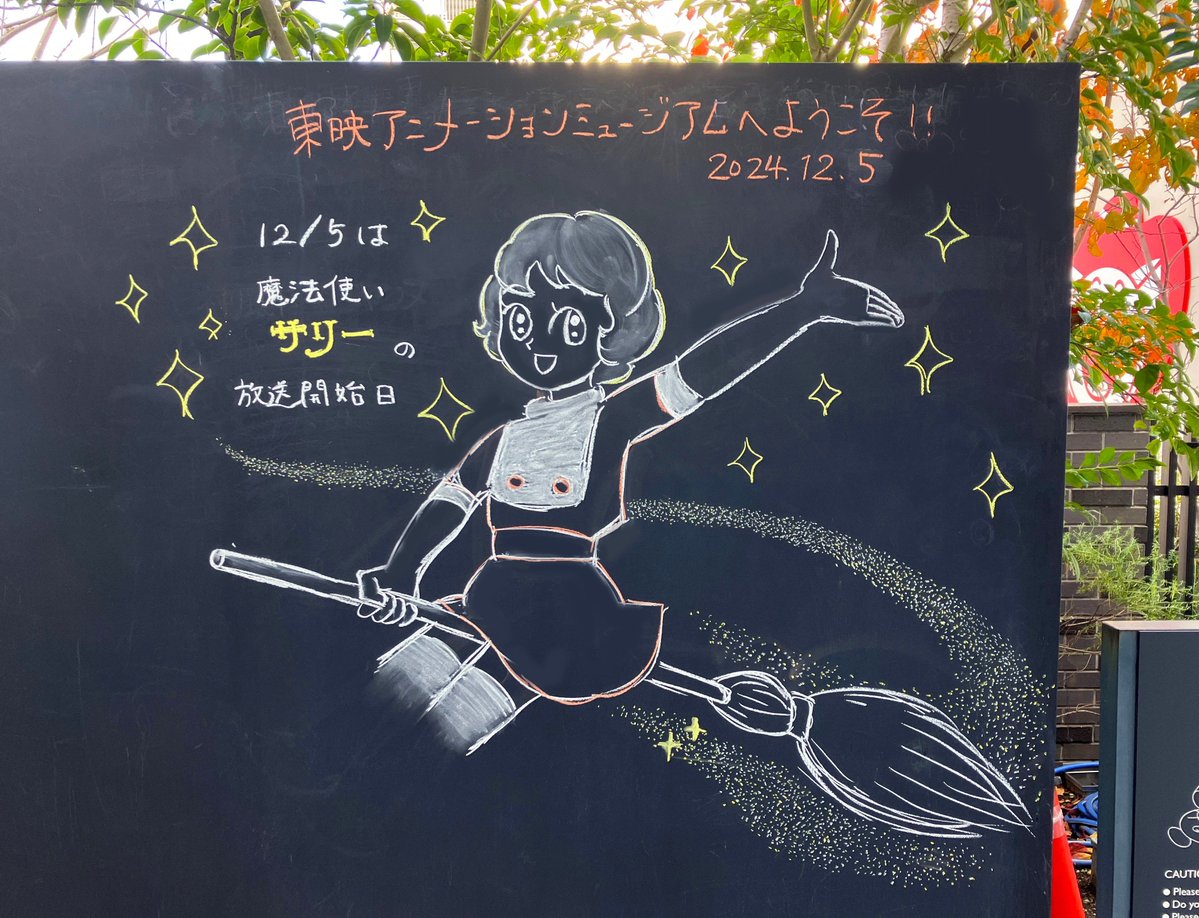 東映アニメーションミュージアムへようこそ!!
2024.12.5
12/5は
魔法使い
サリーの
放送開始日
CAUTI
● Please
● Do yo
● Please